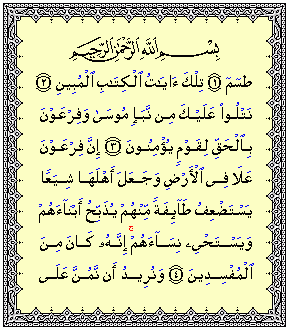 بِسْمِ ٱللَّهِ ٱلرَّحْمَٰنِ ٱلرَّحِيمِ
طسٓمٓ ۝١ تِلْكَ ءَايَٰتُ ٱلْكِتَٰبِ ٱلْمُبِينِ ۝٢
نَتْلُوا۟ عَلَيْكَ مِن نَّبَإِ مُوسَىٰ وَفِرْعَوْنَ
بِٱلْحَقِّ لِقَوْمٍ يُؤْمِنُونَ ۝٣ إِنَّ فِرْعَوْنَ
عَلَا فِى ٱلْأَرْضِ وَجَعَلَ أَهْلَهَا شِيَعًا
يَسْتَضْعِفُ طَآئِفَةً مِّنْهُمْ يُذَبِّحُ أَبْنَآءَهُمْ
وَيَسْتَحْىِۦ نِسَآءَهُمْ ۚ إِنَّهُۥ كَانَ مِنَ
ٱلْمُفْسِدِينَ ۝٤ وَنُرِيدُ أَن نَّمُنَّ عَلَى